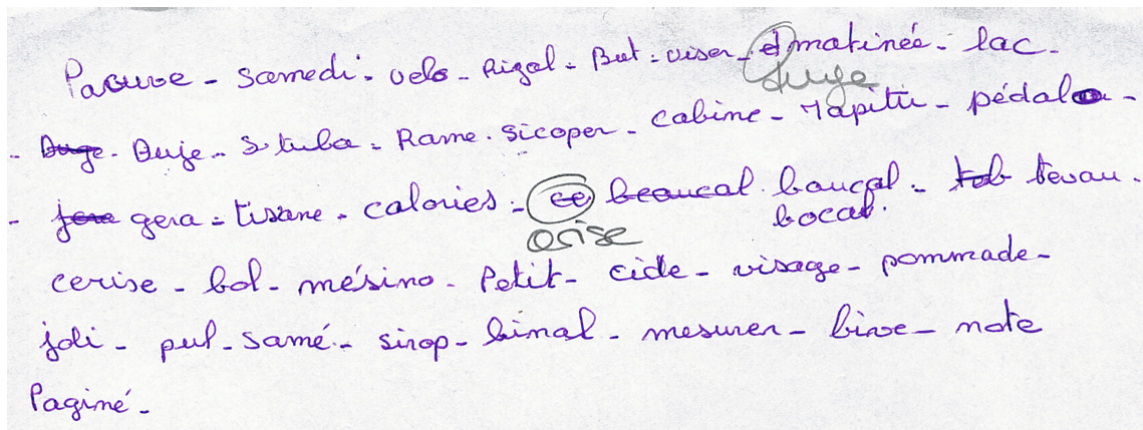 Pacuve - samedi - velo - Rigal - But - viser - d matinée - lac -
duge
- Duge - Duje - Stuba - Rame - sicoper - cabine - Tapitu - pédalo -
- jere gera - tisane - calories - ce beaucal baucal - tob tevau.
orise bocal.
cerise - bol - mésino - Petit - cide - visage - pommade -
joli - puf - samé - sirop - binal - mesurer - bive - note
Paginé -